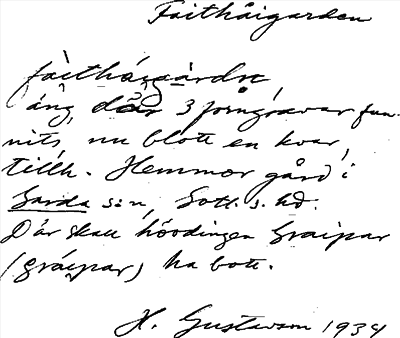 Faithåigarden
fàithái̯gàrdn̥,
áng, där 3 forngravar fun-
nits, nu blott en kvar,
tillh. Hemmor gård i
Garda s:n, Gotl. s. hd.
Där skall hövdingen Graipar
(grái̯par) ha bott.
H. Gustavson 1934